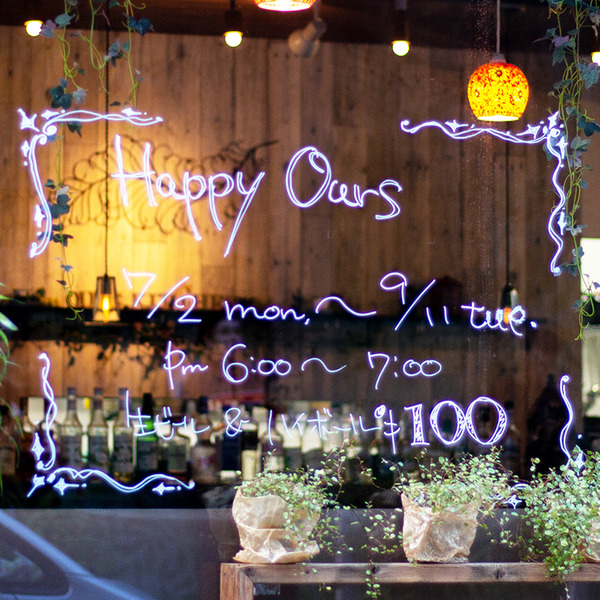 Happy Ours
7/2 mon, ～ 9/11 tue.
Pm 6:00 ～ 7:00
生ビール & ハイボール ¥100